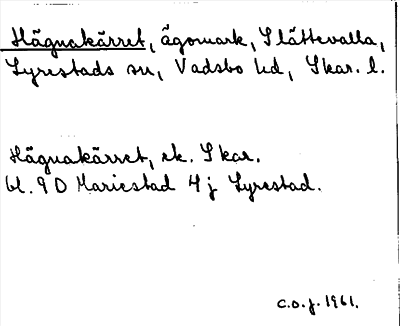 Hägnakärret, ägomark, Slättevalla,
Lyrestads sn, Vadsbo hd, Skar. l.
Hägnakärret, ek. Skar.
bl. 9 D Mariestad 4 j Lyrestad.
C.O.J. 1961.